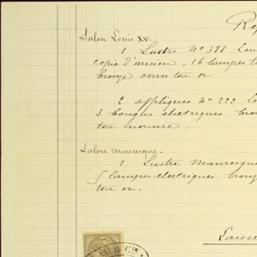 Rep
Salon Louis XV.
1 Lustre N° 398 Lou
copie d'ancien, 16 lampes
bronze verni ton or
2 appliques N° 222 Lou
3 bougies électriques bron
ton
Salon mauresque.
1 Lustre Mauresque
5 lampes électriques bronz
ton or.
Laisse